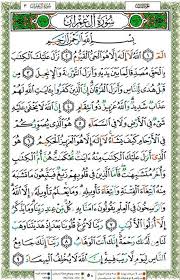 سُورَةُ آلِ عِمْرَانَ
بِسْمِ اللَّهِ الرَّحْمَٰنِ الرَّحِيمِ
الٓمٓ ۝١ اللَّهُ لَا إِلَٰهَ إِلَّا هُوَ الْحَيُّ الْقَيُّومُ ۝٢ نَزَّلَ عَلَيْكَ الْكِتَٰبَ
بِالْحَقِّ مُصَدِّقًا لِّمَا بَيْنَ يَدَيْهِ وَأَنزَلَ التَّوْرَىٰةَ وَالْإِنجِيلَ ۝٣ مِن
قَبْلُ هُدًى لِّلنَّاسِ وَأَنزَلَ الْفُرْقَانَ إِنَّ الَّذِينَ كَفَرُوا بِـَٔايَٰتِ اللَّهِ لَهُمْ
عَذَابٌ شَدِيدٌ وَاللَّهُ عَزِيزٌ ذُو انتِقَامٍ ۝٤ إِنَّ اللَّهَ لَا يَخْفَىٰ عَلَيْهِ شَيْءٌ
فِي الْأَرْضِ وَلَا فِي السَّمَاءِ ۝٥ هُوَ الَّذِي يُصَوِّرُكُمْ
فِي الْأَرْحَامِ كَيْفَ يَشَاءُ لَا إِلَٰهَ إِلَّا هُوَ الْعَزِيزُ الْحَكِيمُ ۝٦ هُوَ الَّذِي
أَنزَلَ عَلَيْكَ الْكِتَٰبَ مِنْهُ ءَايَٰتٌ مُّحْكَمَٰتٌ هُنَّ أُمُّ الْكِتَٰبِ
وَأُخَرُ مُتَشَٰبِهَٰتٌ فَأَمَّا الَّذِينَ فِي قُلُوبِهِمْ زَيْغٌ فَيَتَّبِعُونَ
مَا تَشَٰبَهَ مِنْهُ ابْتِغَاءَ الْفِتْنَةِ وَابْتِغَاءَ تَأْوِيلِهِ وَمَا يَعْلَمُ تَأْوِيلَهُ إِلَّا
اللَّهُ وَالرَّٰسِخُونَ فِي الْعِلْمِ يَقُولُونَ ءَامَنَّا بِهِ كُلٌّ مِّنْ عِندِ رَبِّنَا وَمَا يَذَّكَّرُ
إِلَّا أُولُوا الْأَلْبَٰبِ ۝٧ رَبَّنَا لَا تُزِغْ قُلُوبَنَا بَعْدَ إِذْ هَدَيْتَنَا وَهَبْ
لَنَا مِن لَّدُنكَ رَحْمَةً إِنَّكَ أَنتَ الْوَهَّابُ ۝٨ رَبَّنَا إِنَّكَ
جَامِعُ النَّاسِ لِيَوْمٍ لَّا رَيْبَ فِيهِ إِنَّ اللَّهَ لَا يُخْلِفُ الْمِيعَادَ ۝٩
٥٠